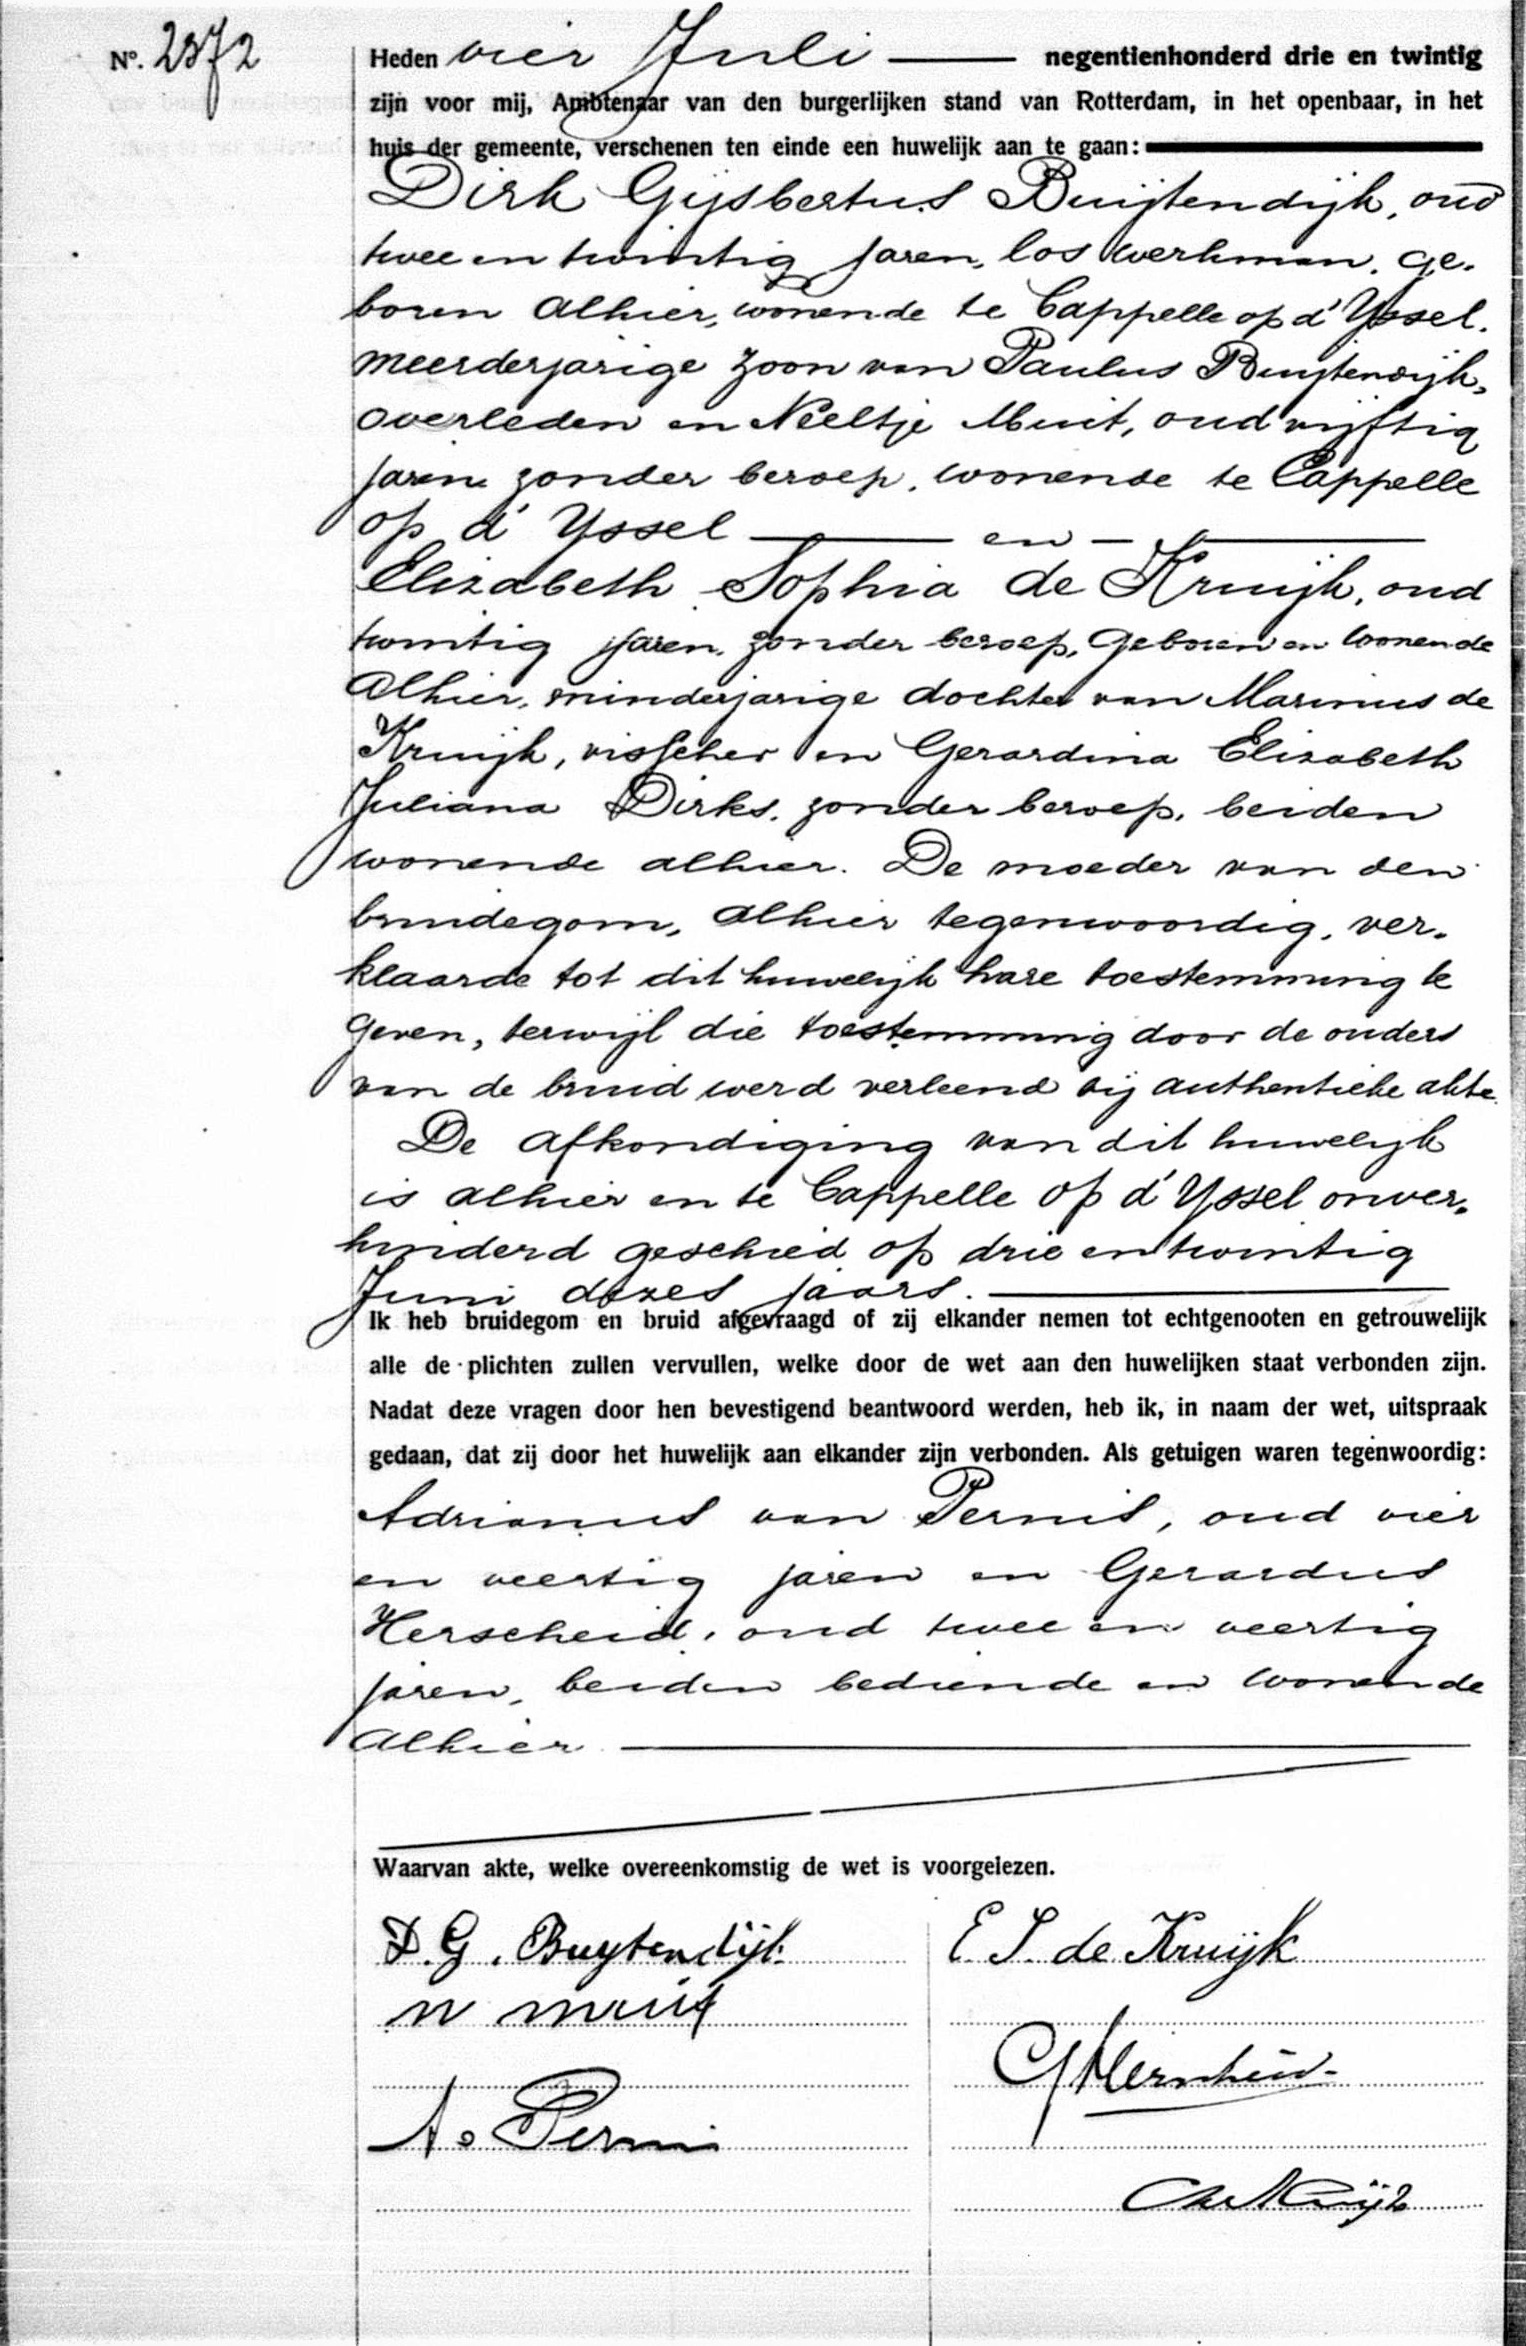 No. 2372
Heden vier Juli negentienhonderd drie en twintig
zijn voor mij, Ambtenaar van den burgerlijken stand van Rotterdam, in het openbaar, in het
huis der gemeente, verschenen ten einde een huwelijk aan te gaan:
Dirk Gijsbertus Buijtendijk, oud
twee en twintig jaren, los werkman, ge-
boren alhier, wonende te Cappelle op d'Yssel,
meerderjarige zoon van Paulus Buijtendijk,
overleden en Neeltje Muit, oud vijftig
jaren zonder beroep, wonende te Cappelle
op d'Yssel en
Elizabeth Sophia de Kruijk, oud
twintig jaren, zonder beroep, geboren en wonende
alhier, minderjarige dochter van Marinus de
Kruijk, visscher en Gerardina Elizabeth
Juliana Dirks, zonder beroep, beiden
wonende alhier. De moeder van den
bruidegom, alhier tegenwoordig, ver-
klaarde tot dit huwelijk hare toestemming te
geven, terwijl die toestemming door de ouders
van de bruid werd verleend bij authentieke akte.
De afkondiging van dit huwelijk
is alhier en te Cappelle op d'Yssel onver-
hinderd geschied op drie en twintig
Juni dezes jaars.
Ik heb bruidegom en bruid afgevraagd of zij elkander nemen tot echtgenooten en getrouwelijk
alle de plichten zullen vervullen, welke door de wet aan den huwelijken staat verbonden zijn.
Nadat deze vragen door hen bevestigend beantwoord werden, heb ik, in naam der wet, uitspraak
gedaan, dat zij door het huwelijk aan elkander zijn verbonden. Als getuigen waren tegenwoordig:
Adrianus van Pernis, oud vier
en veertig jaren en Gerardus
Herscheid, oud twee en veertig
jaren, beiden bediende en wonende
alhier
Waarvan akte, welke overeenkomstig de wet is voorgelezen.
D. G. Buytendijk
E. S. de Kruijk
N Muit